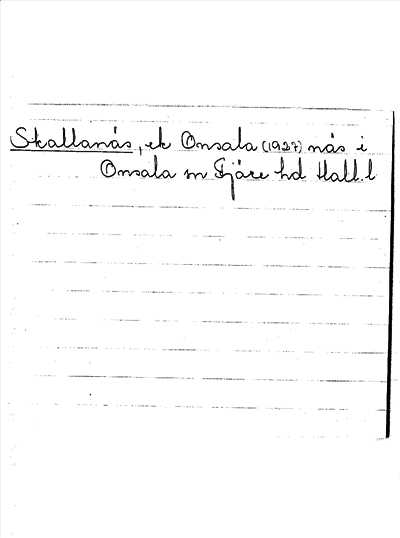 Skallanäs, ek Onsala (1927) näs i
Onsala sn Fjäre hd Hall.l